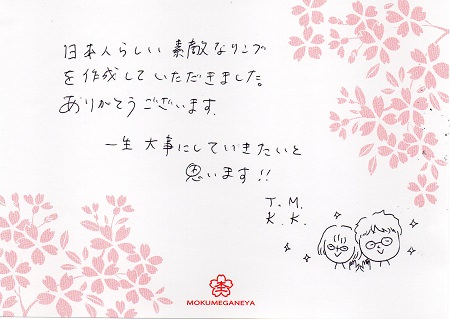 日本人らしい素敵なリング
を作成していただきました。
ありがとうございます.
一生大事にしていきたいと
思います!!
T.M.
K.K.
MOKUMEGANEYA